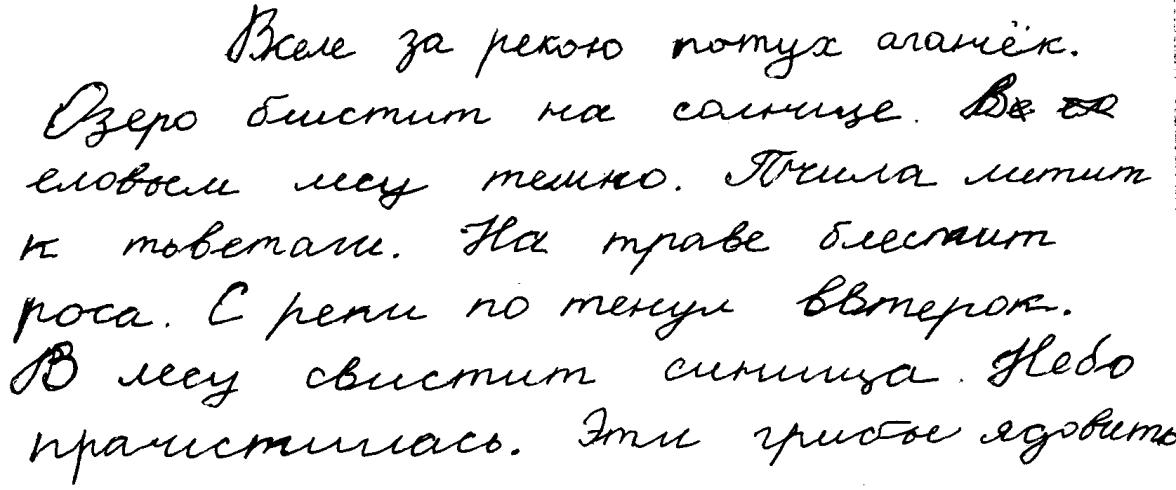 Вселе за рекою потух аганчёк.
Озеро блистит на солнище. Ве
еловым лесу темно. Пчила литит
к тьветами. На траве блестит
роса. С репи по тенул ввтерок.
В лесу свистит синица. Небо
прачистилась. Эти грибы ядовиты